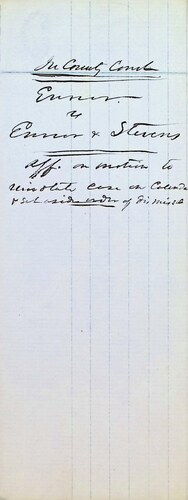 In County Court
Ennor.
vs
Ennor & Stevens
Aff. on motion to
reinstate case on Calendar
& set aside order of dismissal